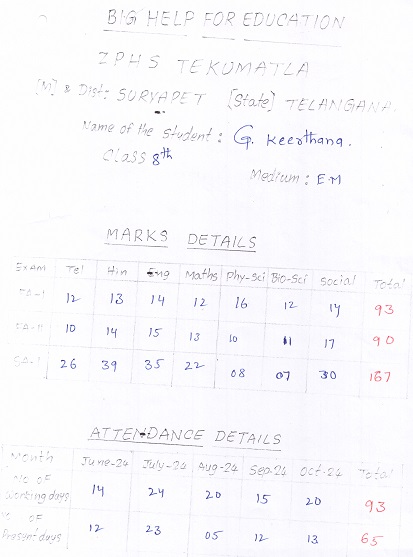 BIG HELP FOR EDUCATION
ZPHS TEKUMATLA
[M] & Dist: SURYAPET [State] TELANGANA.
Name of the Student: G. Keerthana.
Class 8th
Medium: EM
MARKS DETAILS
Exam Tel Hin Eng Maths Phy-Sci Bio-Sci Social Total
FA-I 12 13 14 12 16 12 14 93
FA-II 10 14 15 13 10 11 17 90
SA-I 26 39 35 22 08 07 30 167
ATTENDANCE DETAILS
Month June-24 July-24 Aug-24 Sep-24 Oct-24 Total
No of
Working days 14 24 20 15 20 93
No of
Present days 12 23 05 12 13 65